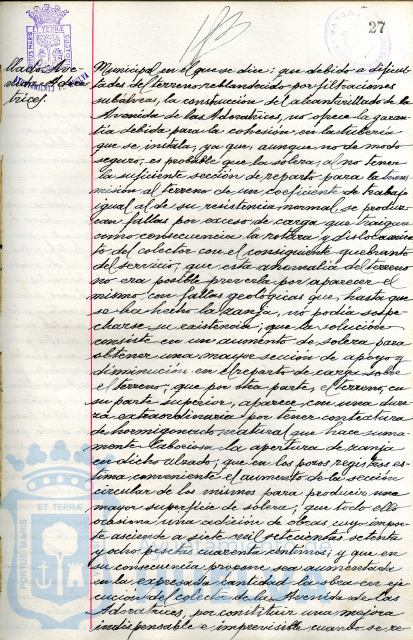 27
PORTUS MARIS ET TERRÆ CUSTODIA
llado Ave-
nida Adora-
trices.
Municipal en el que se dice: que debido a dificul-
tades del terreno, reblandecido por filtraciones
subálveas, la construcción del alcantarillado de la
Avenida de las Adoratrices, no ofrece la garan-
tía debida para la cohesión en la tubería
que se instala, ya que, aunque no de modo
seguro, es probable que la solera, al no tener
la suficiente sección de reparto para la trans-
misión al terreno de un coeficiente de trabajo
igual al de su resistencia normal, se produz-
can fallas por exceso de carga que traigan
como consecuencia la rotura y dislocamien-
to del colector con el consiguiente quebranto
del servicio; que esta anomalía del terreno
no era posible preverla por aparecer el
mismo con fallas geológicas que, hasta que
se ha hecho la zanja, no podía sospe-
charse su existencia; que la solución
consiste en un aumento de solera para
obtener una mayor sección de apoyo y
disminución en el reparto de carga sobre
el terreno; que por otra parte, el terreno, en
su parte superior, aparece con una dure-
za extraordinaria por tener contextura
de hormigonado natural que hace suma-
mente laboriosa la apertura de zanja
en dicho alzado; que en los pozos registros es-
tima conveniente el aumento de la sección
circular de los mismos para producir una
mayor superficie de solera; que todo ello
ocasiona una adición de obras cuyo impor-
te asciende a seis mil setecientas setenta
y ocho pesetas cuarenta céntimos; y que en
su consecuencia propone sea aumentada
en la expresada cantidad la obra en eje-
cución del colector de la Avenida de las
Adoratrices, por constituir una mejora
indispensable e imprevisible cuando se re
PORTUS MARIS ET TERRÆ
Ayuntamiento de